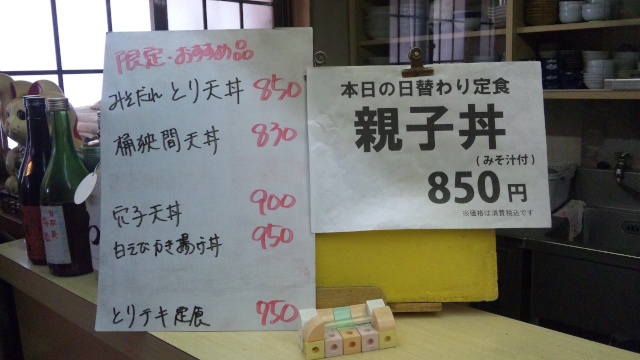 限定・おすすめ品
みそだれ とり天丼 850
桶狭間天丼 830
穴子天丼 900
白えびかき揚げ丼 950
とりテキ定食 750
本日の日替わり定食
親子丼
(みそ汁付)
850円
※価格は消費税込です